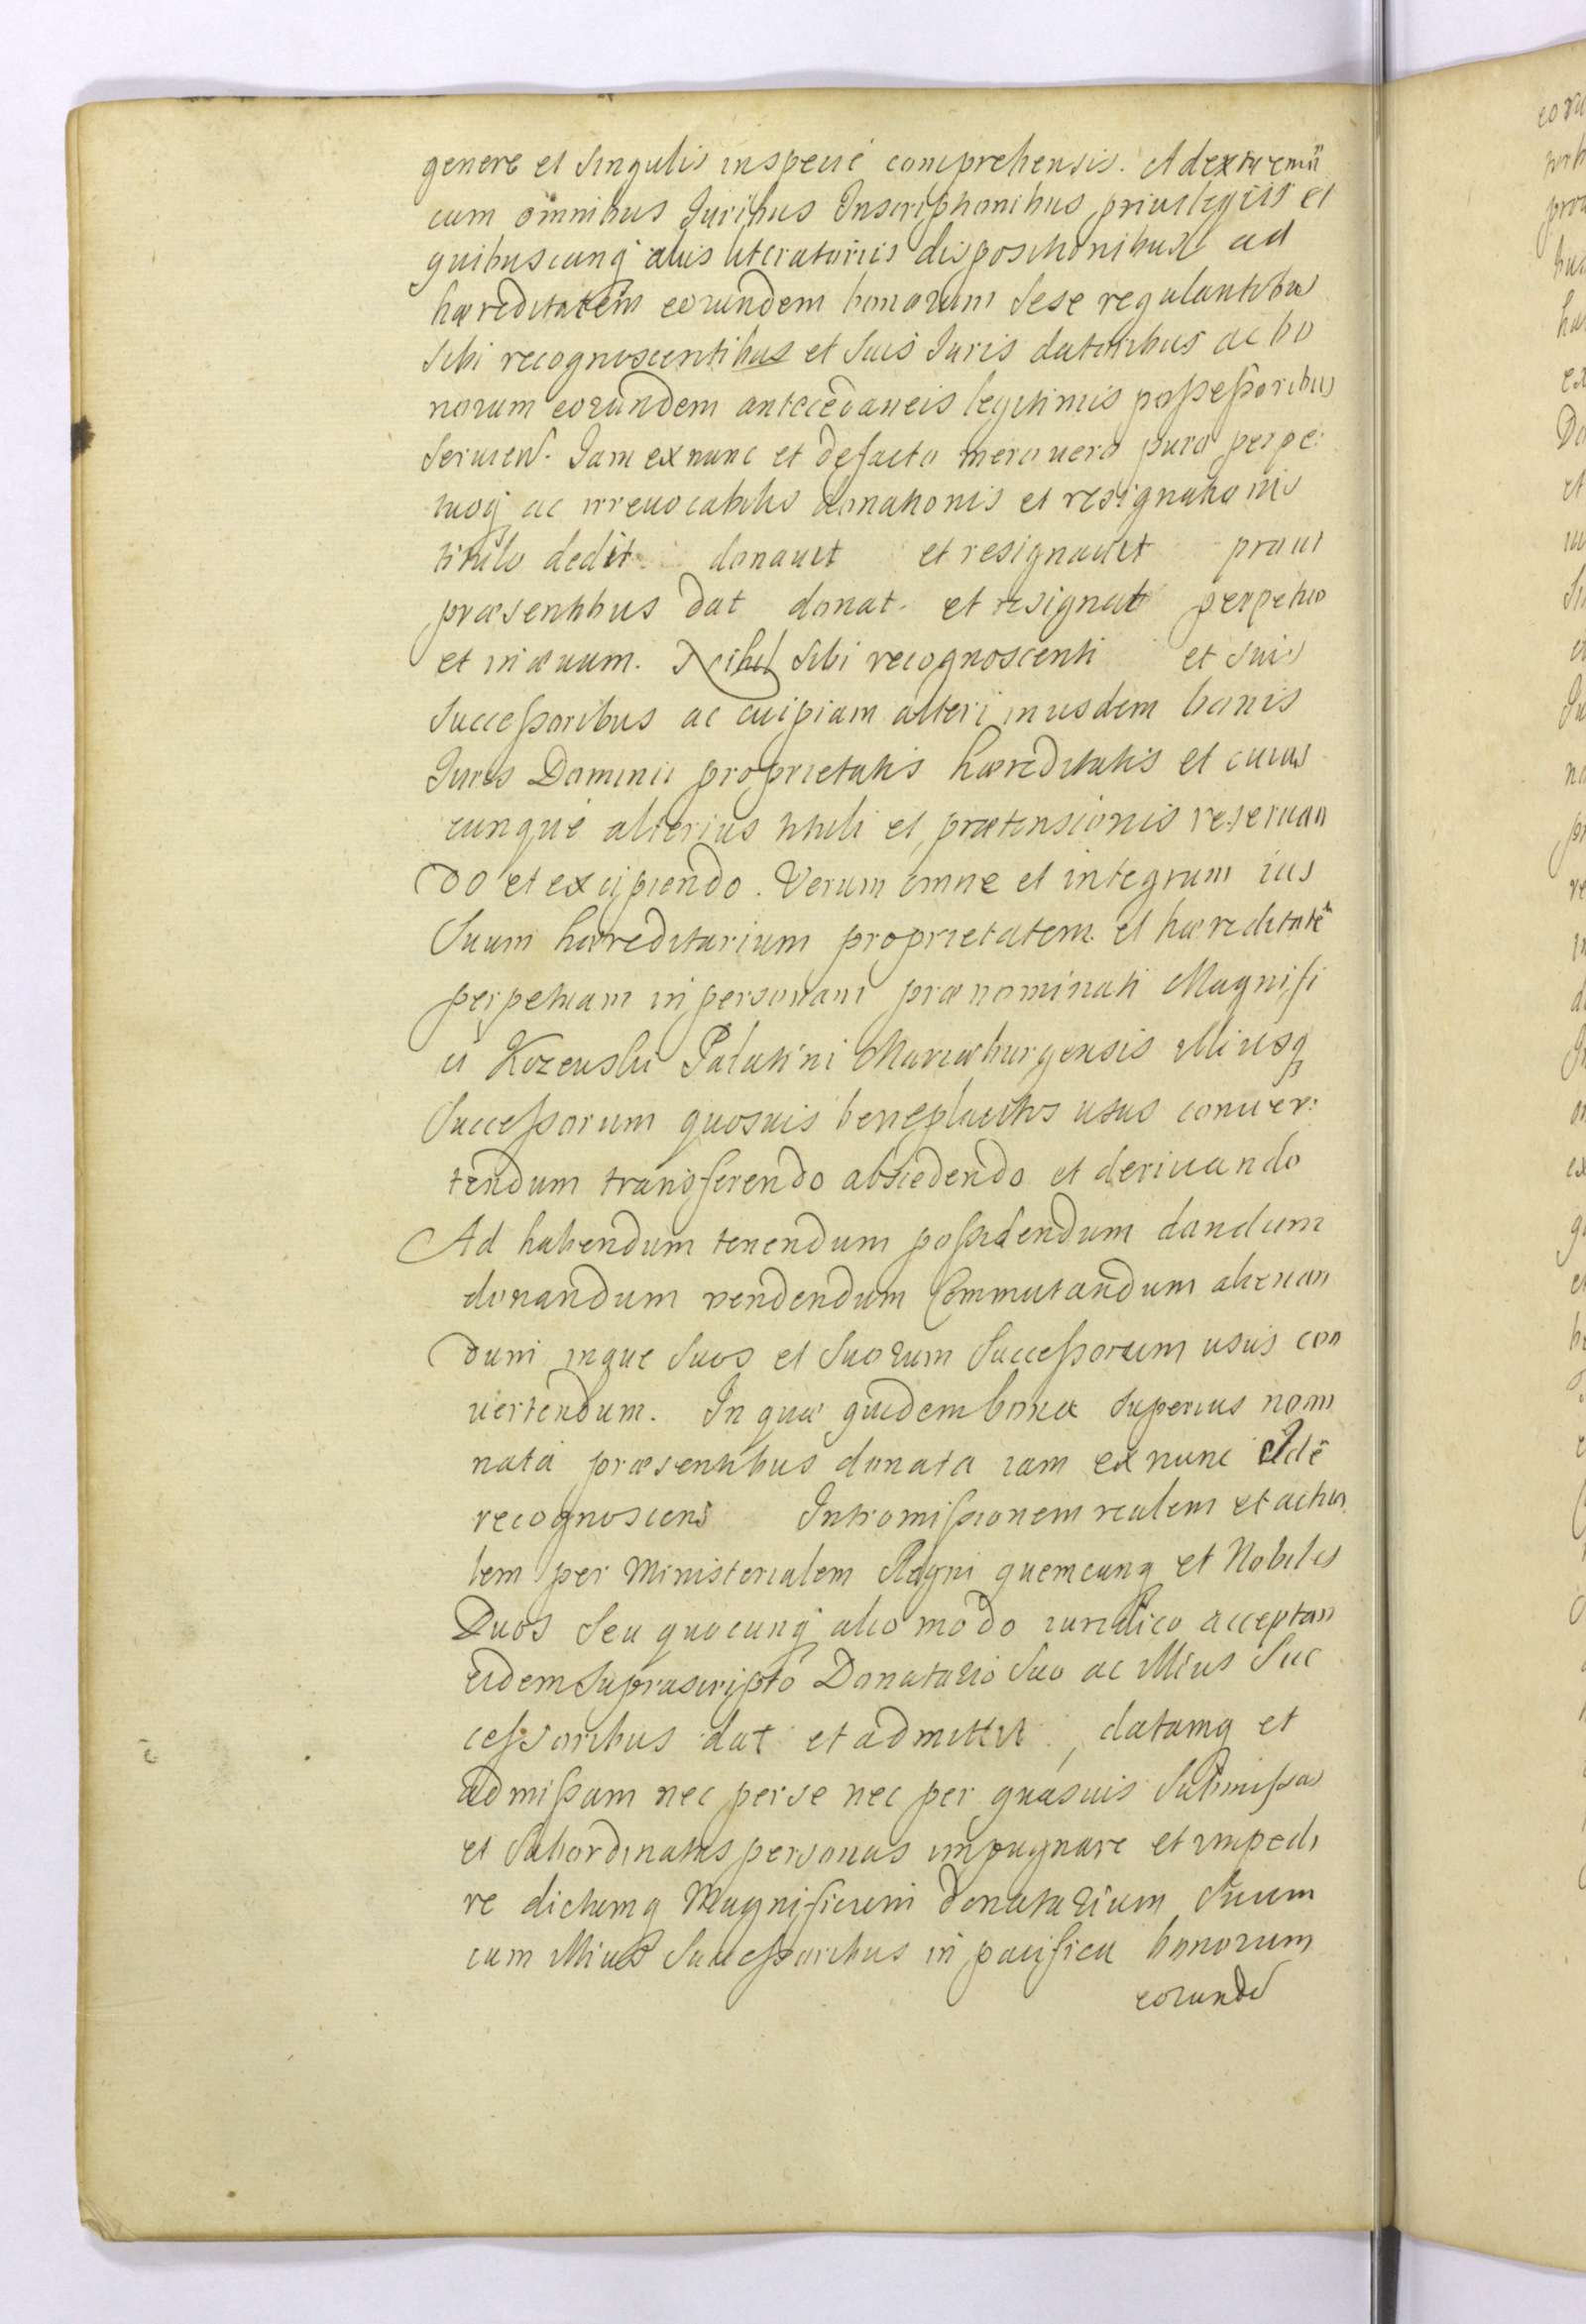 genere et singulis in specie comprehensis. Ad extremū
cum omnibus Juribus Inscriptionibus priuilegijs et
quibuscunq alijs literatorijs dispositionibus ad
hæreditatem eorundem bonorum sese regulantibus
sibi recognoscentibus et suis Juris datoribus ac bo
norum eorundem antecedaneis legitimis possessoribus
seruien. Jam ex nunc et de facto mero uero puro perpe:
tuoq ac irreuocabilis donationis et resignationis
titulo dedit donauit et resignauit prout
præsentibus dat donat et resignat perpetuo
et in æuum. Nihil sibi recognoscenti et suis
Successoribus ac cuipiam alteri in iisdem bonis
Juris Dominii proprietatis hæreditatis et cuius
cunque alterius tituli et prætensionis reseruan
do et excipiendo. Verum omne et integrum ius
Suum hæreditarium proprietatem et hæreditatē
perpetuam in personam prænominati Magnifi
ci Kozewski Palatini Mariæburgensis Illiusq
Successorum quosuis beneplacitos usus conuer:
tendum transferendo abscedendo et deriuando
Ad habendum tenendum possidendum dandum
donandum vendendum Commutandum alienan
dum inque suos et suorum Successorum usus con
uertendum. In quæ quidem bona superius nomi
nata præsentibus donata iam ex nunc Idē
recognoscens Intromissionem realem et actua
lem per Ministerialem Regni quemcunq et Nobiles
Duos seu quocunq alio modo iuridico acceptan
eidem suprascripto Donatario suo ac Illius Suc
cessoribus dat et admittit, datamq et
admissam nec per se nec per quasuis submissas
et subordinatas personas impugnare et impedi
re dictumq Magnificum donatarium suum
cum Illius Successoribus in pacifica bonorum
eorunde